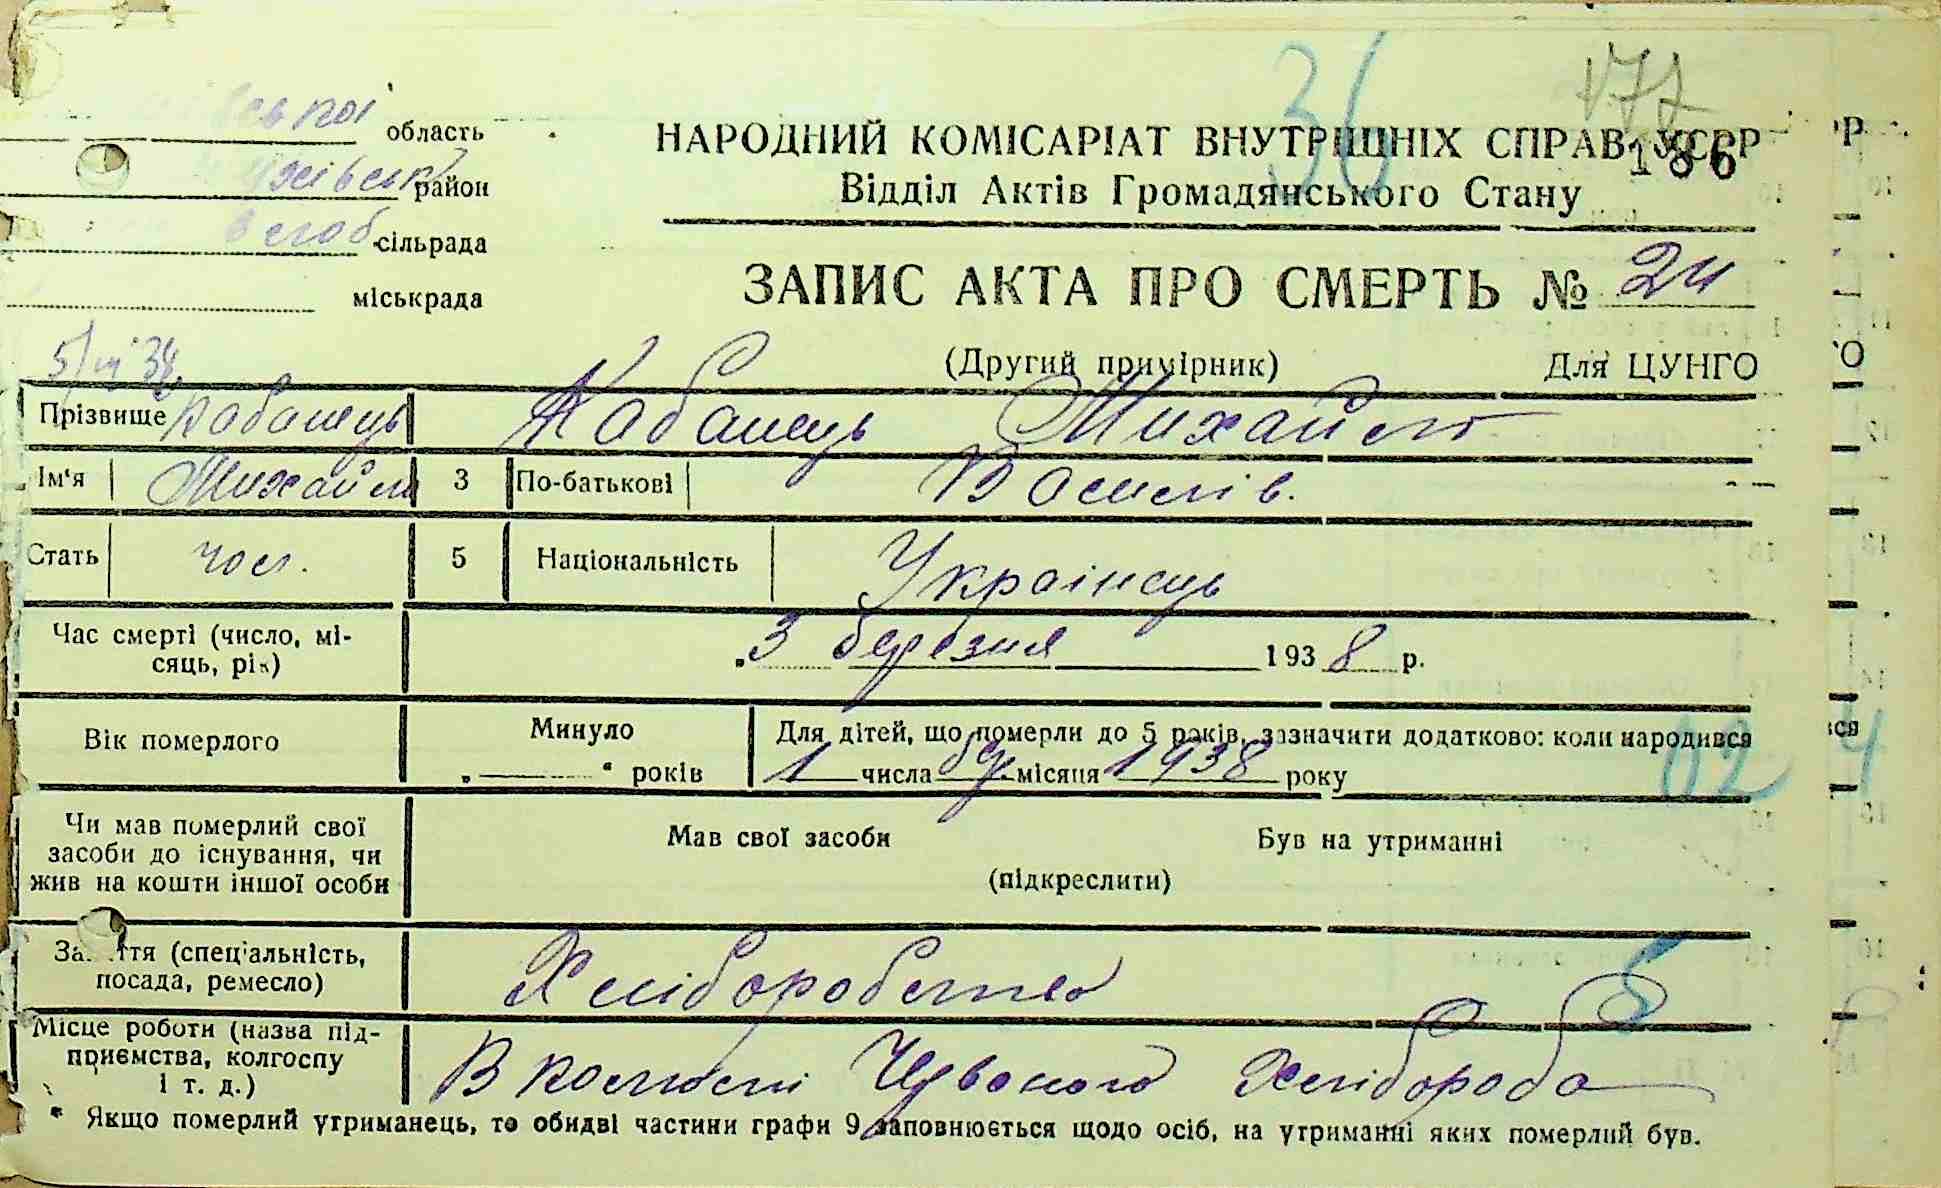 36 177
ської область
НАРОДНИЙ КОМІСАРІАТ ВНУТРІШНІХ СПРАВ УСРР
186
район
Відділ Актів Громадянського Стану
сільрада
міськрада
ЗАПИС АКТА ПРО СМЕРТЬ №
5/III 38
(Другий примірник) Для ЦУНГО
Прізвище Кабанець Кабанець Михайло
Ім'я Михайло 3 По-батькові Василів.
Стать чол. 5 Національність Українець
Час смерті (число, мі-
сяць, рік) 3 березня 1938 р.
Вік померлого Минуло „ — " років
Для дітей, що померли до 5 років, зазначити додатково: коли народився
1 числа бер. місяця 1938 року
02
Чи мав померлий свої
засоби до існування, чи
жив на кошти іншої особи
Мав свої засоби Був на утриманні
(підкреслити)
Заняття (спеціальність,
посада, ремесло) Хліборобство
Місце роботи (назва під-
приємства, колгоспу
і т. д.) В колгоспі Червоного Хлібороба
* Якщо померлий утриманець, то обидві частини графи 9 заповнюється щодо осіб, на утриманні яких померлий був.